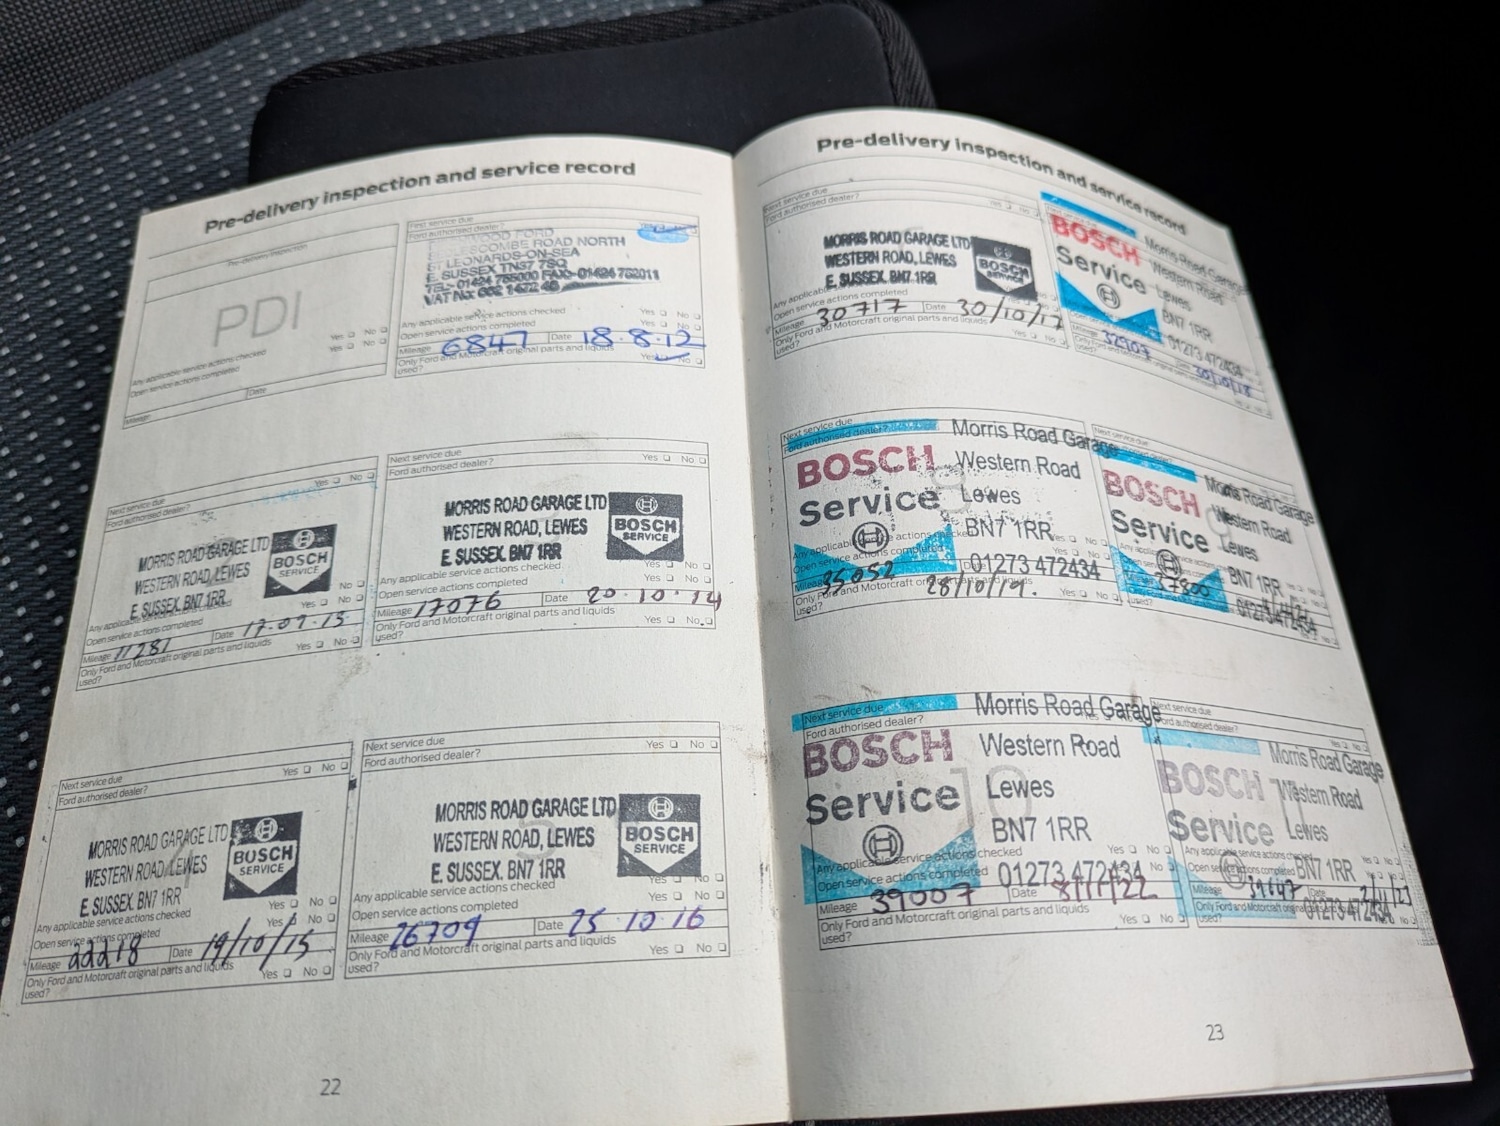 Pre-delivery inspection and service record
Pre-delivery inspection
PDI
Yes No
Yes No
Any applicable service actions checked
Open service actions completed
Mileage Date
First service due
Ford authorised dealer?
FORD
ROAD NORTH
ST LEONARDS-ON-SEA
E. SUSSEX TN37 7SQ
TEL- 01424 755000 FAX- 01424 752011
VAT No:
Any applicable service actions checked Yes No
Open service actions completed Yes No
Mileage 6847 Date 18.8.12
Only Ford and Motorcraft original parts and liquids used? Yes No
Next service due Yes No
Ford authorised dealer?
MORRIS ROAD GARAGE LTD
WESTERN ROAD, LEWES
E. SUSSEX. BN7 1RR
BOSCH
SERVICE
Any applicable service actions checked No
Open service actions completed Yes No
Mileage 11281 Date 17.07.13
Only Ford and Motorcraft original parts and liquids used? Yes No
Next service due
Ford authorised dealer? Yes No
MORRIS ROAD GARAGE LTD
WESTERN ROAD, LEWES
E. SUSSEX. BN7 1RR
BOSCH
SERVICE
Any applicable service actions checked Yes No
Open service actions completed Yes No
Mileage 17076 Date 20.10.14
Only Ford and Motorcraft original parts and liquids used? Yes No
Next service due
Ford authorised dealer? Yes No
MORRIS ROAD GARAGE LTD
WESTERN ROAD, LEWES
E. SUSSEX. BN7 1RR
BOSCH
SERVICE
Any applicable service actions checked Yes No
Open service actions completed Yes No
Mileage 22218 Date 19/10/15
Only Ford and Motorcraft original parts and liquids used? Yes No
Next service due
Ford authorised dealer? Yes No
MORRIS ROAD GARAGE LTD
WESTERN ROAD, LEWES
E. SUSSEX. BN7 1RR
BOSCH
SERVICE
Any applicable service actions checked Yes No
Open service actions completed Yes No
Mileage 26709 Date 25.10.16
Only Ford and Motorcraft original parts and liquids used? Yes No
22
Pre-delivery inspection and service record
Next service due
Ford authorised dealer? Yes No
MORRIS ROAD GARAGE LTD
WESTERN ROAD, LEWES
E. SUSSEX. BN7 1RR
BOSCH
SERVICE
Any applicable
Open service actions completed
Mileage 30717 Date 30/10/17
Only Ford and Motorcraft original parts and liquids used?
BOSCH
Service
Morris Road Garage
Western Road
Lewes
BN7 1RR
01273 472434
Mileage 32907 Date 30/10/18
Next service due
Ford authorised dealer?
BOSCH
Service
Morris Road Garage
Western Road
Lewes
BN7 1RR
01273 472434
Any applicable service actions checked Yes No
Open service actions completed Yes No
Mileage 35052 28/10/19.
Only Ford and Motorcraft original parts and liquids used? Yes No
Next service due
BOSCH
Service
Morris Road Garage
Western Road
Lewes
BN7 1RR
01273 472434
37800
used?
Next service due
Ford authorised dealer?
BOSCH
Service
Morris Road Garage
Western Road
Lewes
BN7 1RR
01273 472434
Any applicable service actions checked Yes No
Open service actions completed No
Mileage 39007 Date 8/11/22
Only Ford and Motorcraft original parts and liquids used? Yes No
Next service due
Ford authorised dealer? Yes No
BOSCH
Service
Morris Road Garage
Western Road
Lewes
BN7 1RR
01273 472434
Any applicable service actions
Open service actions completed
Mileage Date 2/11/23
Only Ford and Motorcraft original
used?
23